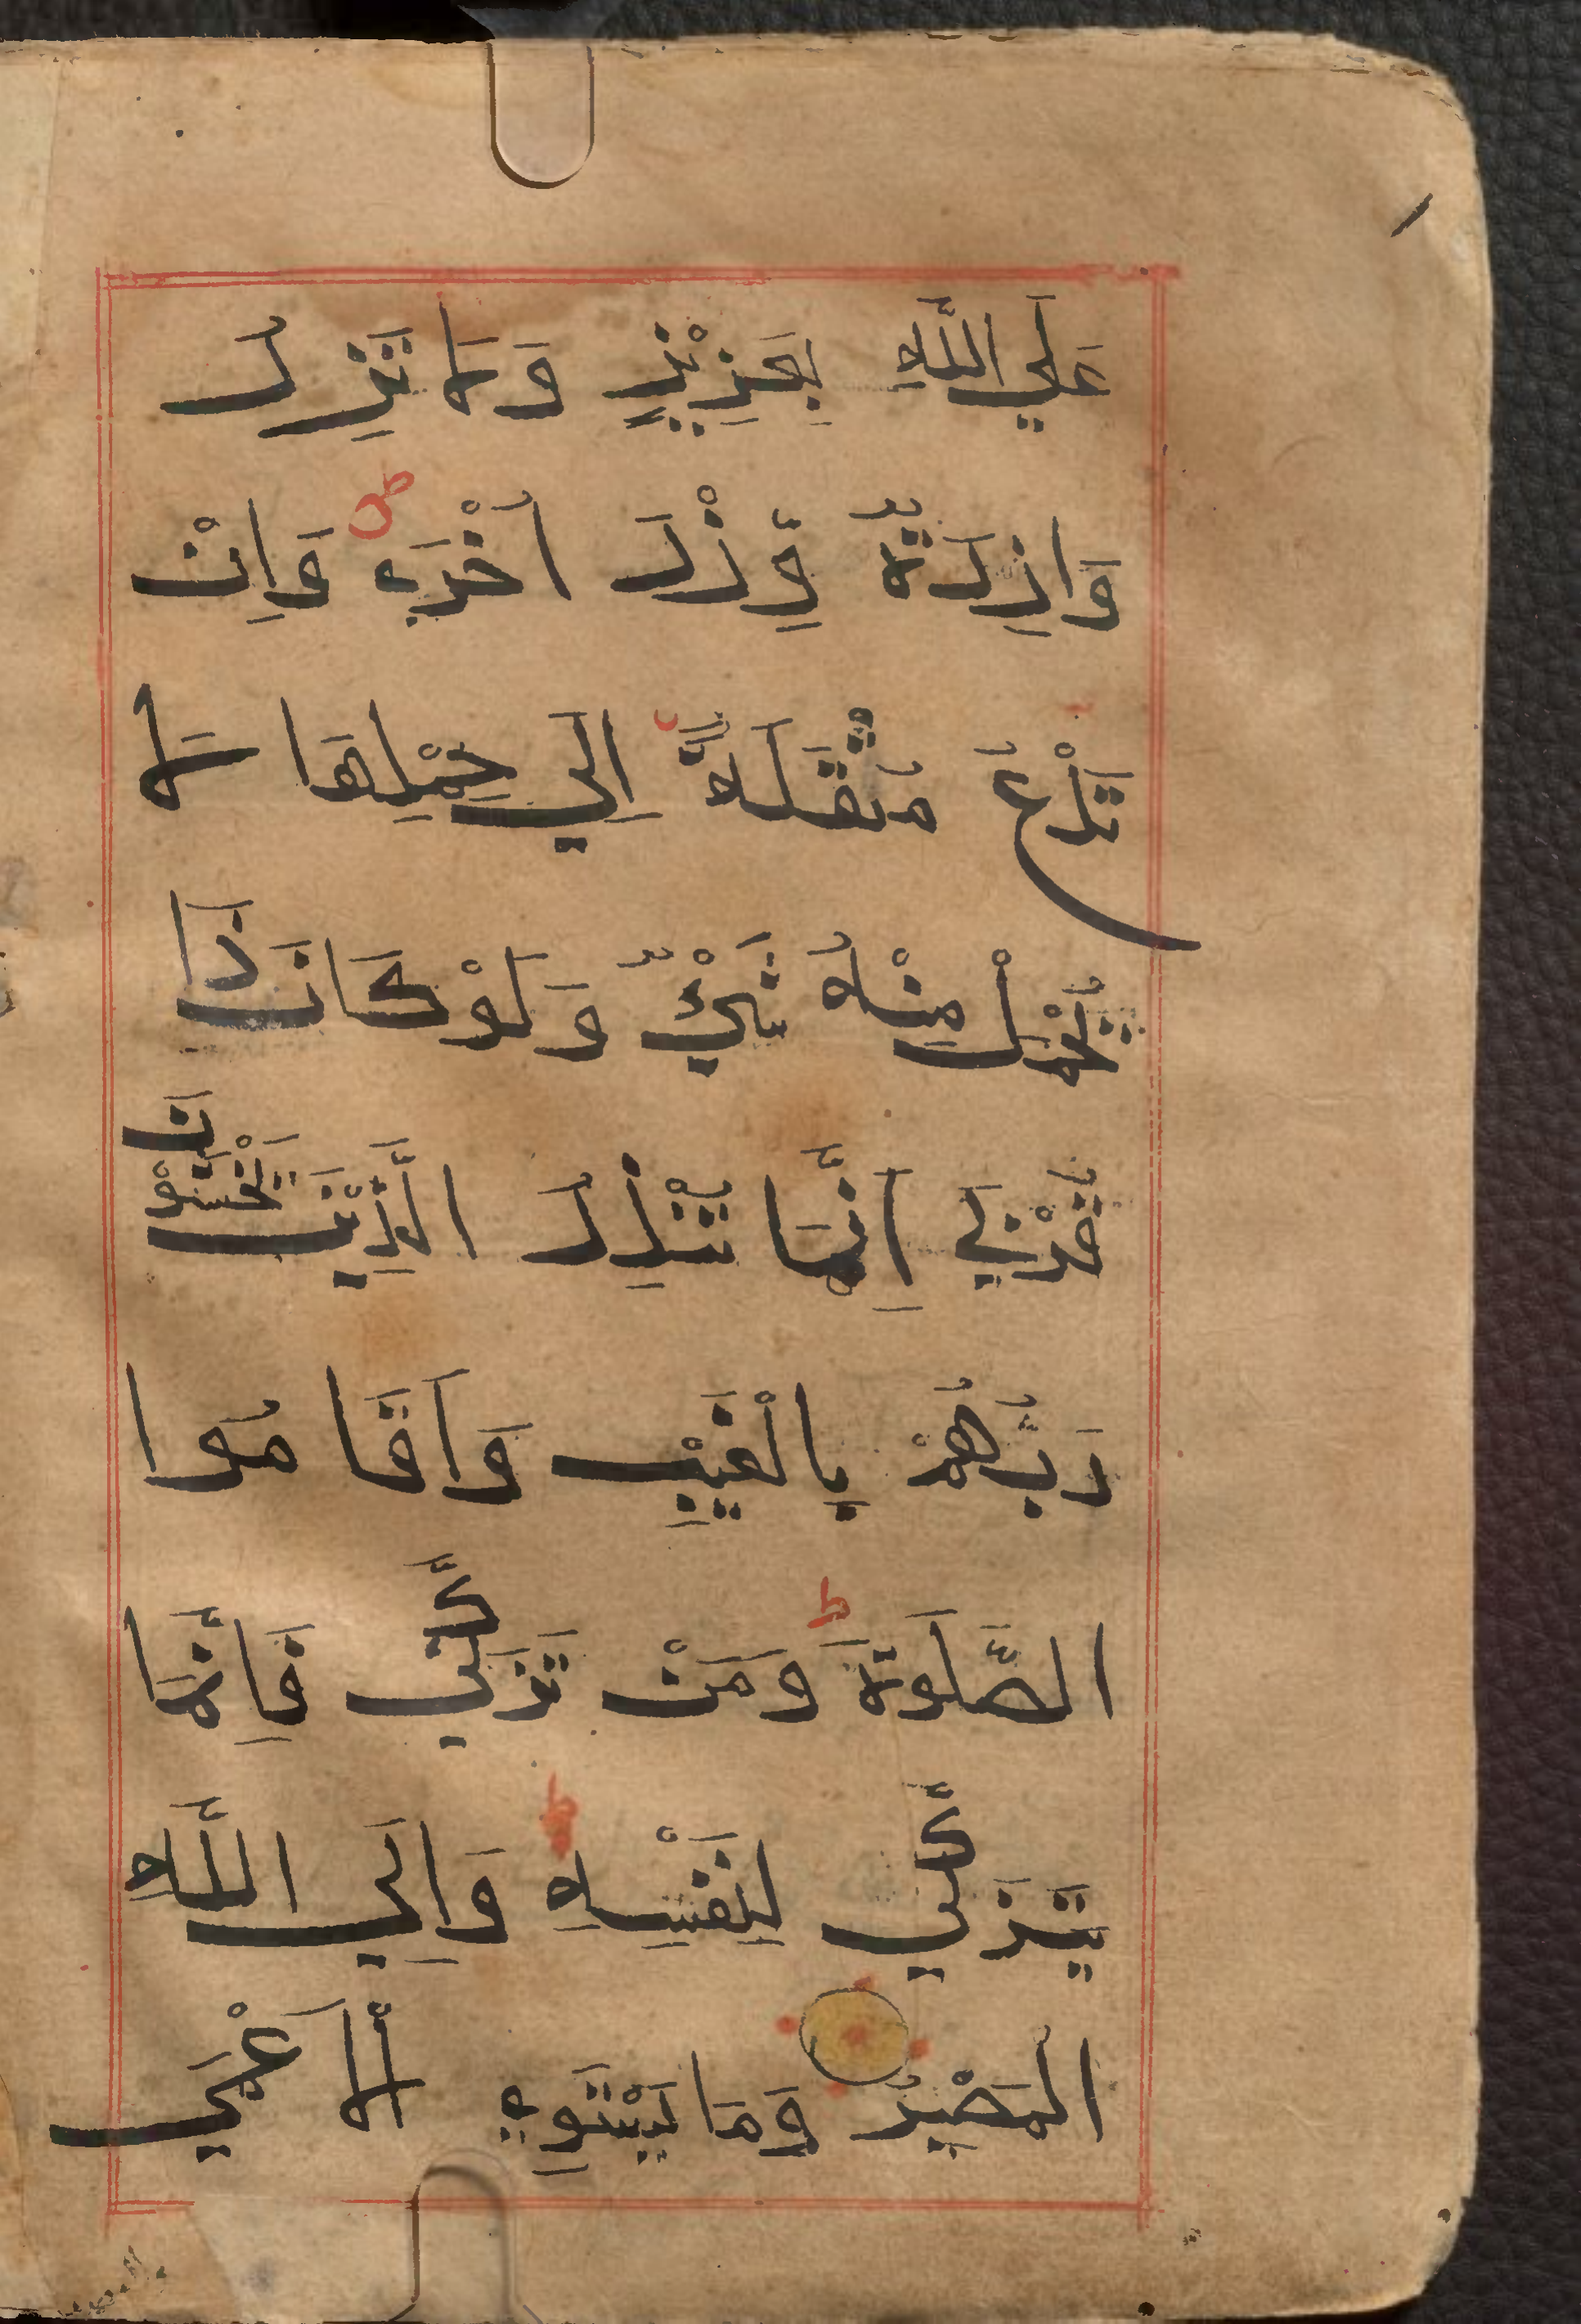 عَلَي اللَّهِ بِعَزِيْزٍ وَلَا تَزِرُ
وَازِرَةٌ وِّزْرَ اُخْرَىؕ وَاِنْ
تَدْعُ مُثْقَلَةٌ اِلَي حِمْلِهَا لَا
يُحْمَلْ مِنْهُ شَيْءٌ وَلَوْ كَانَ ذَا
قُرْبَي اِنَّمَا تُنْذِرُ الَّذِيْنَ يَخْشَوْنَ
رَبَّهُمْ بِالْغَيْبِ وَاَقَامُوا
الصَّلَوةَ ط وَمَنْ تَزَكَّي فَاِنَّمَا
يَتَزَكَّي لِنَفْسِهِ ط وَاِلَي اللَّهِ
الْمَصِيْرُ وَمَا يَسْتَوِي الْاَعْمَي